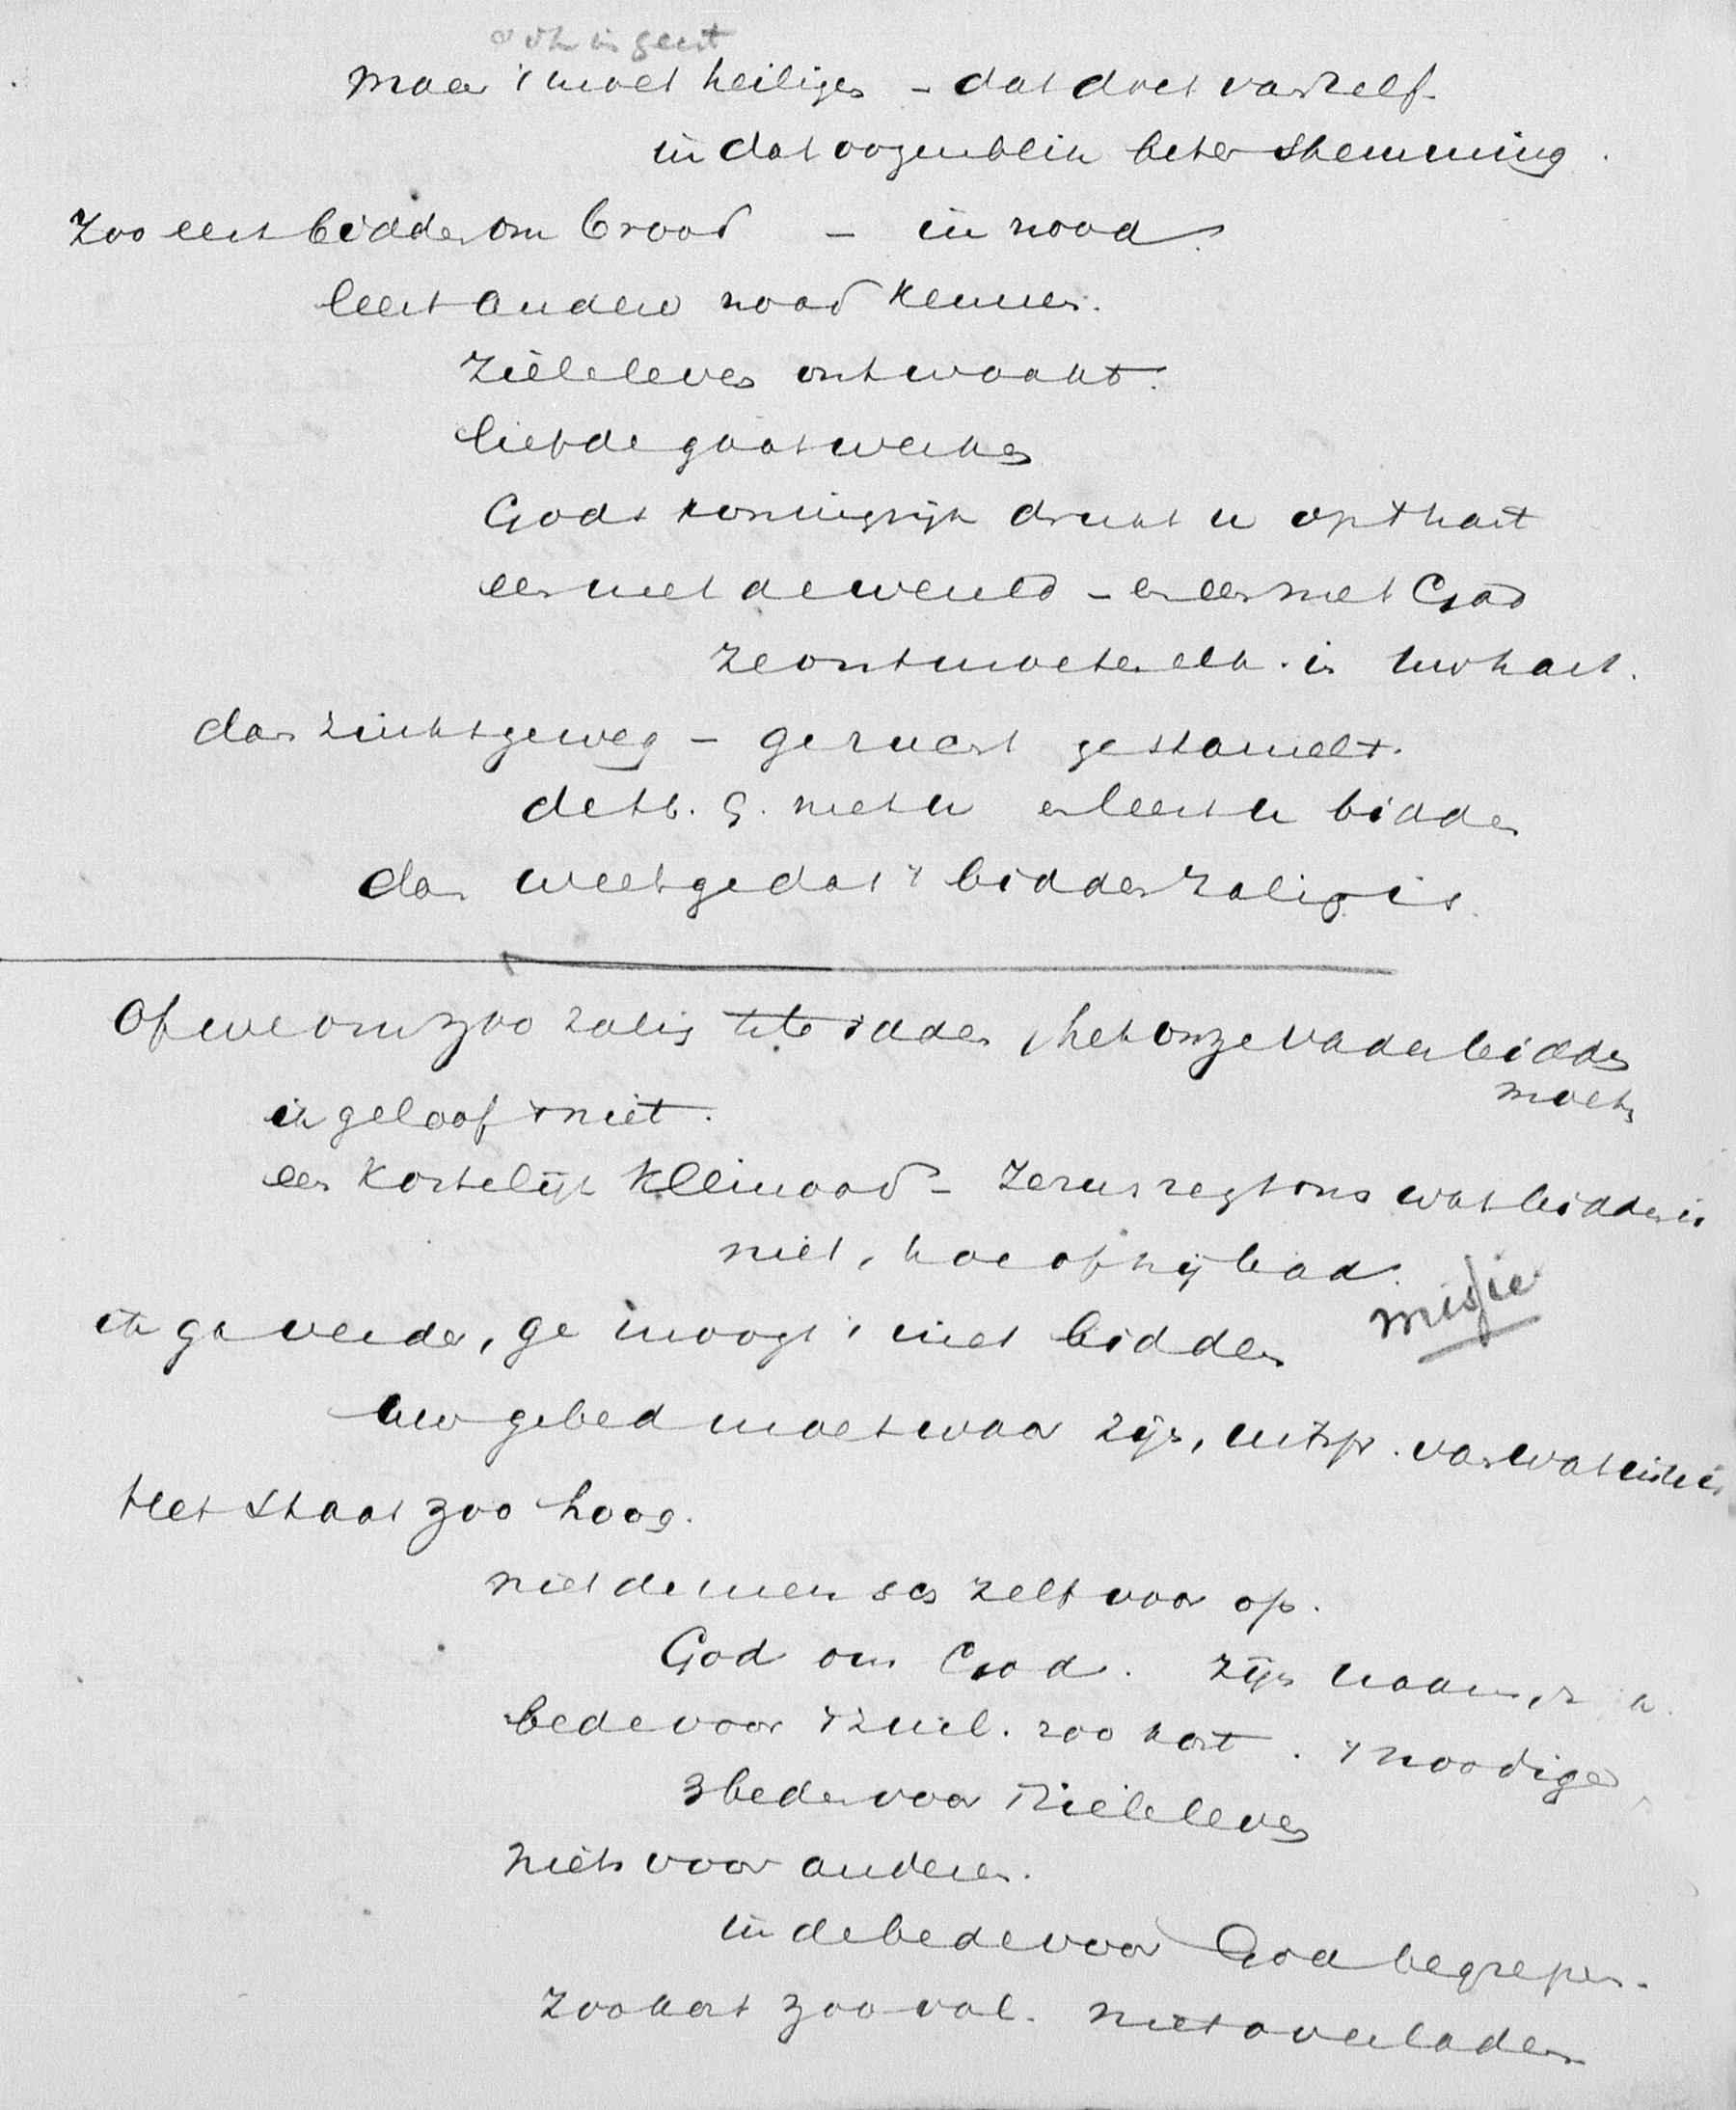 in geest
maar 't moet heiligen – dat doet vanzelf
in dat oogenblik beter stemming.
Zoo eerst bidden om brood – in nood.
leert anderer nood kennen.
Zieleleven ontwaakt.
liefde gaat werken
Gods koningrijk drukt u op 't hart
een met de wereld – en een met God
ze ontmoeten elk. in uw hart.
dan zinkt ge weg – gestamelt.
d. H. G. met u en leert u bidden
dan weet ge dat 't bidden zalig is.
Of we om zoo zalig te bidden, het onze Vader bidden
moeten
ik geloof 't niet.
een kostelijk kleinood – Jezus zegt ons wat bidden is
niet, hoe of hij bad.
misje
ik ga verder, ge moogt 't niet bidden
uw gebed moet waar zijn, uitspr. van wat in u is
Het staat zoo hoog.
niet de mensch zelf voor op.
God om God. zijn naam, k. w.
bede voor 't zinl. zoo kort. 't noodige
3 beden voor 't zieleleven
niets voor anderen.
in de bede voor God begrepen.
zoo kort zoo vol. niet overladen